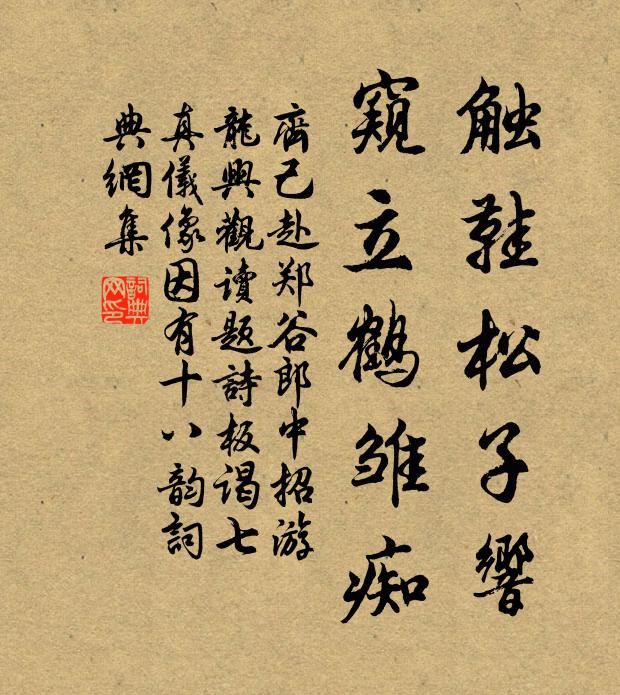 触鞋松子響
窺立鶴雏痴
齊己赴郑谷郎中招游
龍興觀读題詩板谒七
真儀像因有十八韵詞
典網集
詞典网印